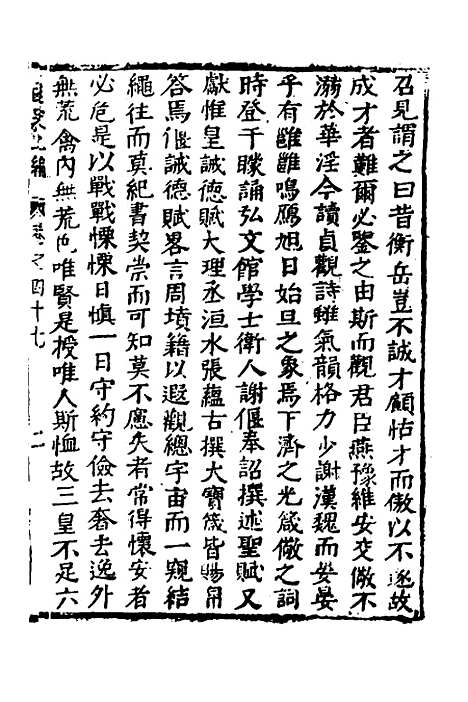 召見謂之曰昔衡岳豈不誠才顧怙才而傲以不遂故
成才者難爾必鑒之由斯而觀君臣燕豫維安交儆不
溺於華淫今讀貞觀詩雖氣韻格力少謝漢魏而晏
乎有雝雝鳴鴈旭日始旦之象焉下濟之光箴儆之詞
時登于牘誦弘文館學士衛人謝偃奉詔撰述聖賦又
獻惟皇誡德賦大理丞洹水張蘊古撰大寶箴皆賜帛
答焉偃誡德賦畧言周墳籍以遐觀總宇宙而一窺結
繩往而莫紀書契崇而可知莫不慮失者常得懷安者
必危是以戰戰慄慄日慎一日守約守儉去奢去逸外
無荒禽內無荒色唯賢是授唯人斯恤故三皇不足六
編 卷之四十七 二